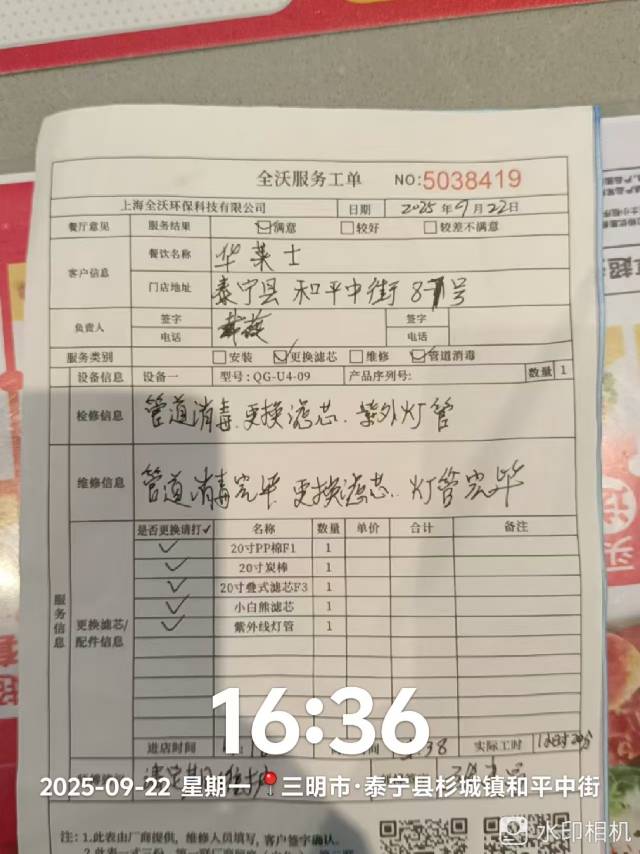 全沃服务工单 NO:5038419
上海全沃环保科技有限公司 日期 2025年9月22日
餐厅意见 服务结果 ☑满意 □较好 □较差不满意
客户信息 餐饮名称 华莱士
门店地址 泰宁县和平中街87号
负责人 签字 签字
电话 电话
服务类别 □安装 ☑更换滤芯 □维修 ☑管道消毒
设备信息 设备一 型号:QG-U4-09 产品序列号: 数量 1
检修信息 管道消毒.更换滤芯.紫外灯管
维修信息 管道消毒完毕 更换滤芯.灯管完毕
服务信息
更换滤芯/配件信息
是否更换请打✓ 名称 数量 单价 合计 备注
✓ 20寸PP棉F1 1
✓ 20寸炭棒 1
✓ 20寸叠式滤芯F3 1
✓ 小白熊滤芯 1
✓ 紫外线灯管 1
进店时间 间 38 实际工时
16:36
2025-09-22 星期一 三明市·泰宁县杉城镇和平中街
注:1.此表由厂商提供,维修人员填写,客户签字确认.
水印相机